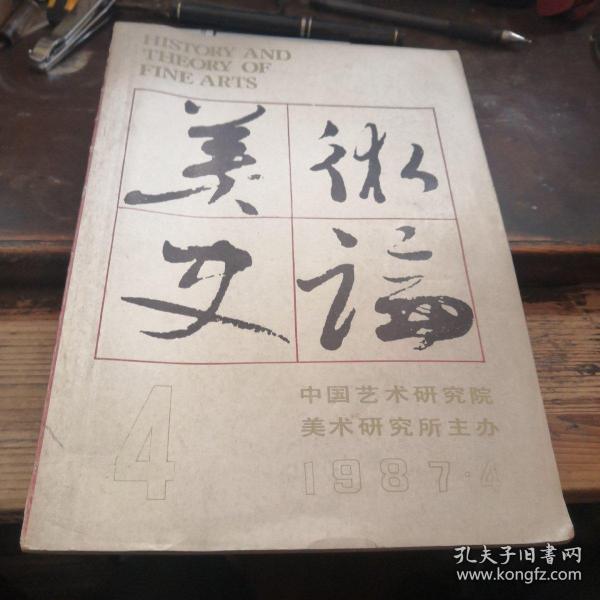 HISTORY AND
THEORY OF
FINE ARTS
美術
史論
4
中国艺术研究院
美术研究所主办
1987·4
孔夫子旧书网
www.kongfz.com